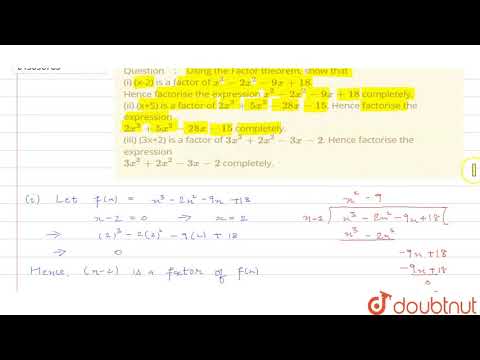 Question : Using the Factor theorem, show that
(i) (x-2) is a factor of x³ − 2x² − 9x + 18.
Hence factorise the expression x³ − 2x² − 9x + 18 completely.
(ii) (x+5) is a factor of 2x³ + 5x² − 28x − 15. Hence factorise the
expression
2x³ + 5x² − 28x − 15 completely.
(iii) (3x+2) is a factor of 3x³ + 2x² − 3x − 2. Hence factorise the
expression
3x³ + 2x² − 3x − 2 completely.
(i) Let f(x) = x³ − 2x² − 9x + 18
x − 2 = 0 ⇒ x = 2
⇒ (2)³ − 2(2)² − 9(2) + 18
⇒ 0
Hence, (x−2) is a factor of f(x)
x² − 9
x−2 ) x³ − 2x² − 9x + 18
x³ − 2x²
−9x + 18
−9x + 18
0
doubtnut